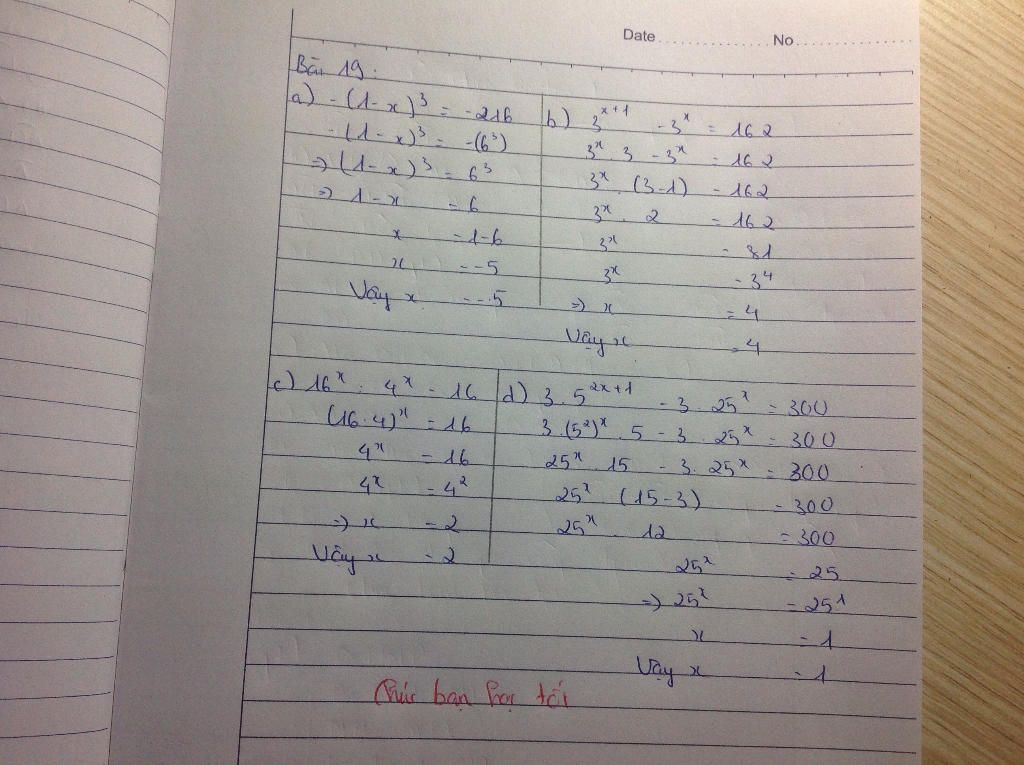 Date No
Bài 19:
a) -(1-x)³ = -216
-(1-x)³ = -(6³)
=> (1-x)³ = 6³
=> 1-x = 6
x = 1-6
x = -5
Vậy x = -5
b) 3ˣ⁺¹ - 3ˣ = 162
3ˣ . 3 - 3ˣ = 162
3ˣ . (3-1) = 162
3ˣ . 2 = 162
3ˣ = 81
3ˣ = 3⁴
=> x = 4
Vậy x = 4
c) 16ˣ : 4ˣ = 16
(16:4)ˣ = 16
4ˣ = 16
4ˣ = 4²
=> x = 2
Vậy x = 2
d) 3.5²ˣ⁺¹ - 3.25ˣ = 300
3.(5²)ˣ.5 - 3.25ˣ = 300
25ˣ.15 - 3.25ˣ = 300
25ˣ.(15-3) = 300
25ˣ.12 = 300
25ˣ = 25
=> 25ˣ = 25¹
x = 1
Vậy x = 1
Chúc bạn học tốt